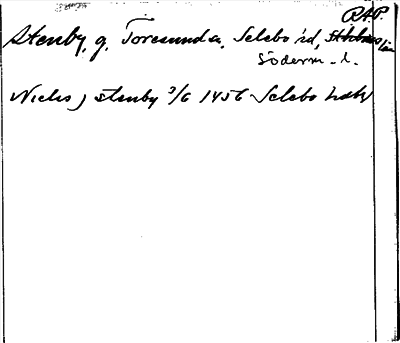 RAP.
Stenby, g. Toresunda, Selebo hd, Sthlms län
Söderm. l.
Niclis j stenby 3/6 1456 Selebo hdb